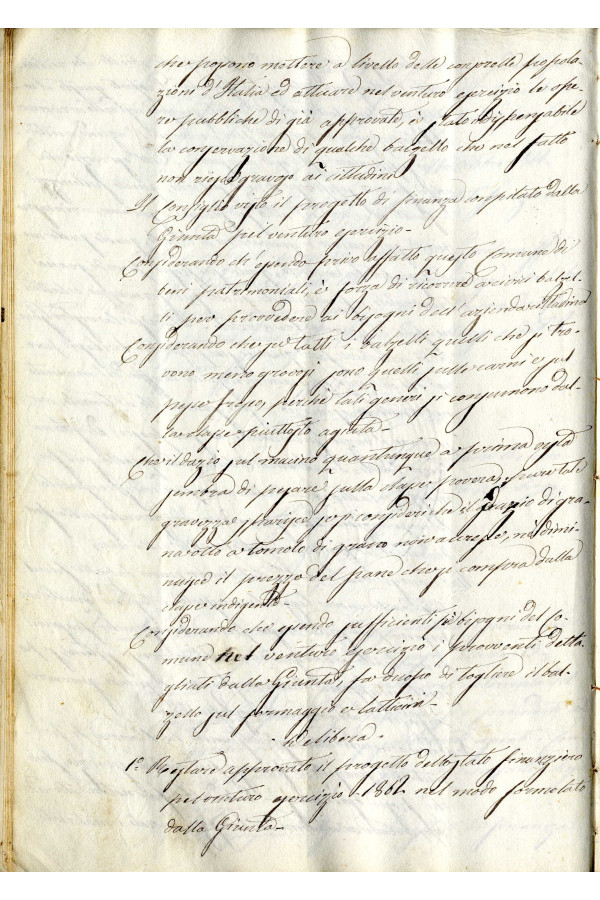 che possono mettere a livello delle consorelle popola-
zioni d'Italia ed attuare nel venturo esercizio le ope-
re pubbliche di già approvate, è stato indispensabile
la conservazione di qualche balzello che nel fatto
non riesce gravoso ai cittadini
Il Consiglio visto il progetto di finanza compilato dalla
Giunta pel venturo esercizio-
Considerando ch'essendo privo affatto questo Comune di
beni patrimoniali, è forza di ricorrere a diversi balzel-
li per provvedere ai bisogni dell'azienda cittadina
Considerando che fra tutti i balzelli quelli che si tro-
vono meno gravosi sono quelli sulle carni e sul
pesce fresco, perchè tali generi si consumono dal-
la classe piuttosto agiata-
Che il dazio sul macino quantunque a prima vista
sembra di pesare sulla classe povera, pure tale
gravezza sparisce se si consideri che il dazio di gra-
na otto a tomolo di grano non accresce, nè dimi-
nuisce il prezzo del pane che si compra dalla
classe indigente-
Considerando che essendo sufficienti pei bisogni del Co-
mune nel venturo esercizio i provventi detta-
gliati dalla Giunta, fa duopo di togliere il bal-
zello sul formaggio e latticini-
Delibera-
1º Restare approvato il progetto dello stato finanziero
pel venturo esercizio 1862 nel modo formolato
dalla Giunta-